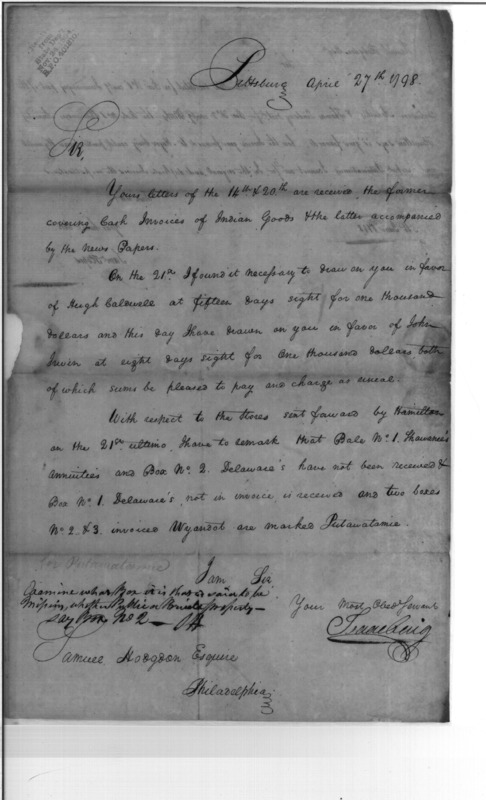 Pittsburg April 27th 1798.
SIR,
Yours letters of the 14th & 20th are received, the former
covering Cash Invoices of Indian Goods & the latter accompanied
by the News Papers.
On the 21st I found it necessary to draw on you in favor
of Hugh Caldwell at fifteen days sight for one thousand
dollars and this day I have drawn on you in favor of John
Irwin at eight days sight for One thousand dollars both
of which sums be pleased to pay and charge as usual.
With respect to the Stores sent forward by Hamilton
on the 21st ultimo, I have to remark that Bale No. 1. Shawnee's
Annuities and Box No. 2. Delaware's have not been received &
Box No. 1. Delaware's not in invoice is received and two boxes
No 2 & 3. invoiced Wyandot are marked Putawatamie.
for Putawatamie
I am Sir
Examine what Box it is that is said to be
Missing, whether Public or Private Property—
say Box No 2 —
Your Most Obed Servant
Isaac Craig
Samuel Hodgdon Esquire
Philadelphia